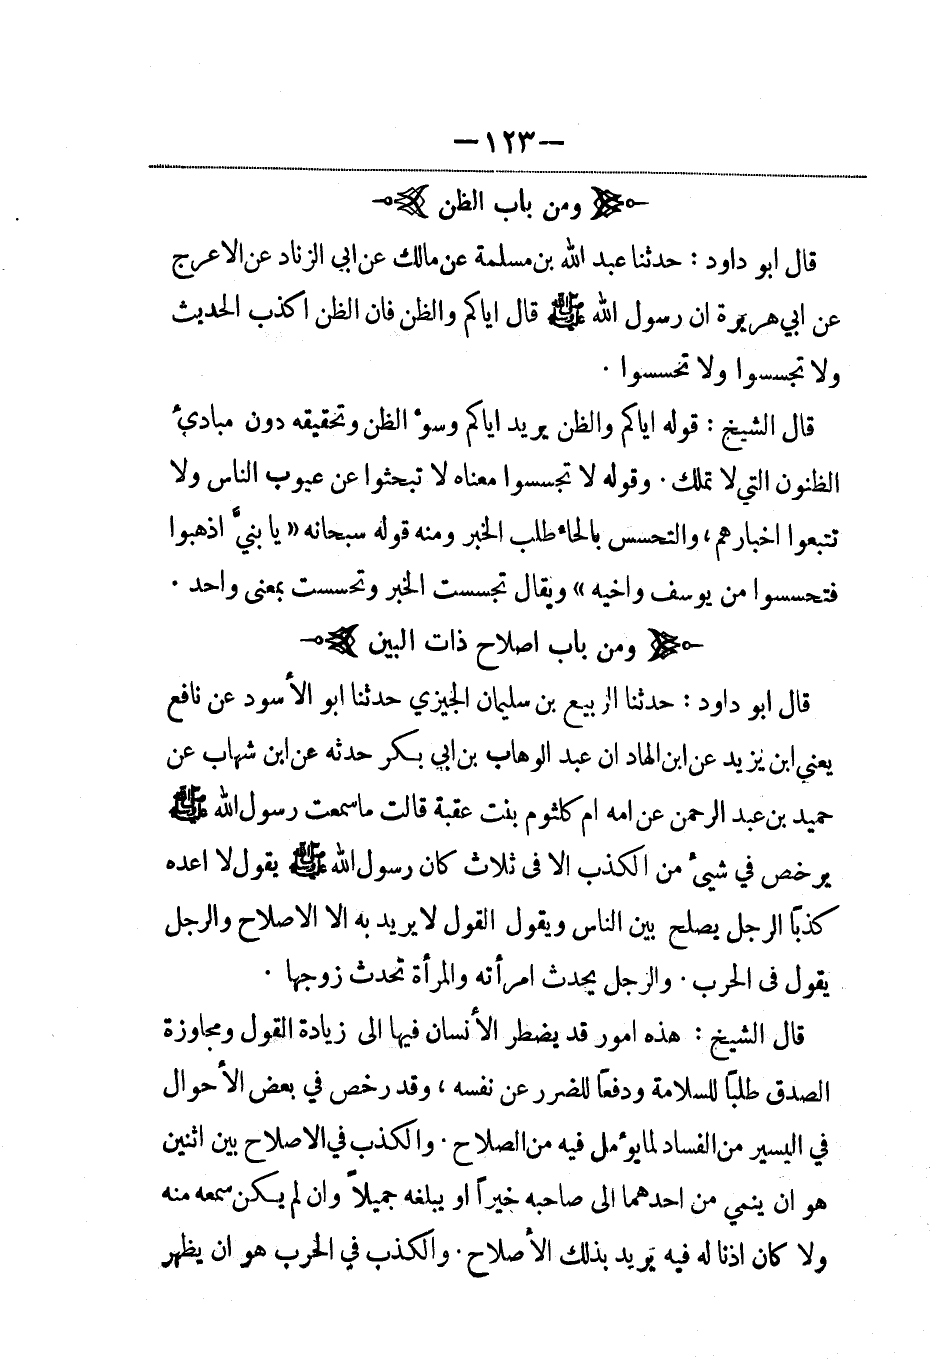 — ١٢٣ —
ومن باب الظن
قال ابو داود : حدثنا عبد الله بن مسلمة عن مالك عن ابي الزناد عن الاعرج
عن ابي هريرة ان رسول الله ﷺ قال اياكم والظن فان الظن اكذب الحديث
ولا تجسسوا ولا تحسسوا ·
قال الشيخ : قوله اياكم والظن يريد اياكم وسوء الظن وتحقيقه دون مبادئ
الظنون التي لا تملك · وقوله لا تجسسوا معناه لا تبحثوا عن عيوب الناس ولا
تتبعوا اخبارهم ، والتحسس بالحاء طلب الخبر ومنه قوله سبحانه « يا بنيَّ اذهبوا
فتحسسوا من يوسف واخيه » ويقال تجسست الخبر وتحسست بمعنى واحد ·
ومن باب اصلاح ذات البين
قال ابو داود : حدثنا الربيع بن سليمان الجيزي حدثنا ابو الأسود عن نافع
يعني ابن يزيد عن ابن الهاد ان عبد الوهاب بن ابي بكر حدثه عن ابن شهاب عن
حميد بن عبد الرحمن عن امه ام كلثوم بنت عقبة قالت ما سمعت رسول الله ﷺ
يرخص في شيئ من الكذب الا فى ثلاث كان رسول الله ﷺ يقول لا اعده
كذباً الرجل يصلح بين الناس ويقول القول لا يريد به الا الاصلاح والرجل
يقول فى الحرب · والرجل يحدث امرأته والمرأة تحدث زوجها ·
قال الشيخ : هذه امور قد يضطر الأنسان فيها الى زيادة القول ومجاوزة
الصدق طلباً للسلامة ودفعاً للضرر عن نفسه ، وقد رخص في بعض الأحوال
في اليسير من الفساد لما يؤمل فيه من الصلاح · والكذب في الاصلاح بين اثنين
هو ان ينمي من احدهما الى صاحبه خيراً او يبلغه جميلاً وان لم يكن سمعه منه
ولا كان اذنا له فيه يريد بذلك الأصلاح · والكذب في الحرب هو ان يظهر